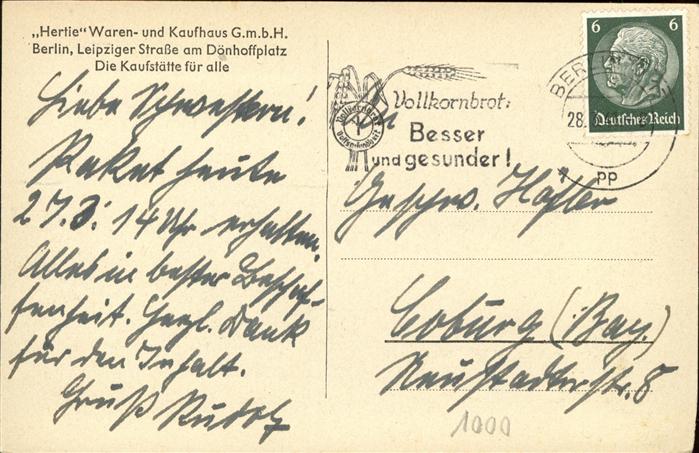 „Hertie" Waren- und Kaufhaus G.m.b.H.
Berlin, Leipziger Straße am Dönhoffplatz
Die Kaufstätte für alle
Liebe Schwestern!
Paket heute
27.3. 14 Uhr erhalten.
Alles in bester Beschaf-
fenheit. Herzl. Dank
für den Inhalt.
Gruß Rudolf
Vollkornbrot:
Besser
und gesunder!
BERLIN
28.
pp
6 6
Deutsches Reich
An
Geschw. Höfler
Coburg (Bay.)
Neustadterstr. 8
1000